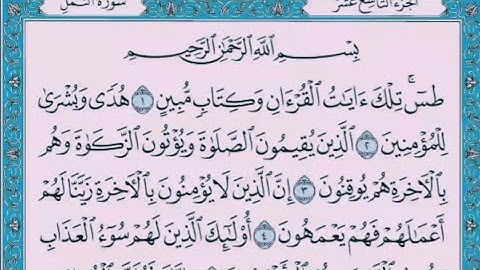 الجزء التاسع عشر
سورة النمل
بِسْمِ ٱللَّهِ ٱلرَّحْمَٰنِ ٱلرَّحِيمِ
طسٓ ۚ تِلْكَ ءَايَٰتُ ٱلْقُرْءَانِ وَكِتَابٍ مُّبِينٍ ١ هُدًى وَبُشْرَىٰ
لِلْمُؤْمِنِينَ ٢ ٱلَّذِينَ يُقِيمُونَ ٱلصَّلَوٰةَ وَيُؤْتُونَ ٱلزَّكَوٰةَ وَهُم
بِٱلْءَاخِرَةِ هُمْ يُوقِنُونَ ٣ إِنَّ ٱلَّذِينَ لَا يُؤْمِنُونَ بِٱلْءَاخِرَةِ زَيَّنَّا لَهُمْ
أَعْمَٰلَهُمْ فَهُمْ يَعْمَهُونَ ٤ أُو۟لَٰٓئِكَ ٱلَّذِينَ لَهُمْ سُوٓءُ ٱلْعَذَابِ